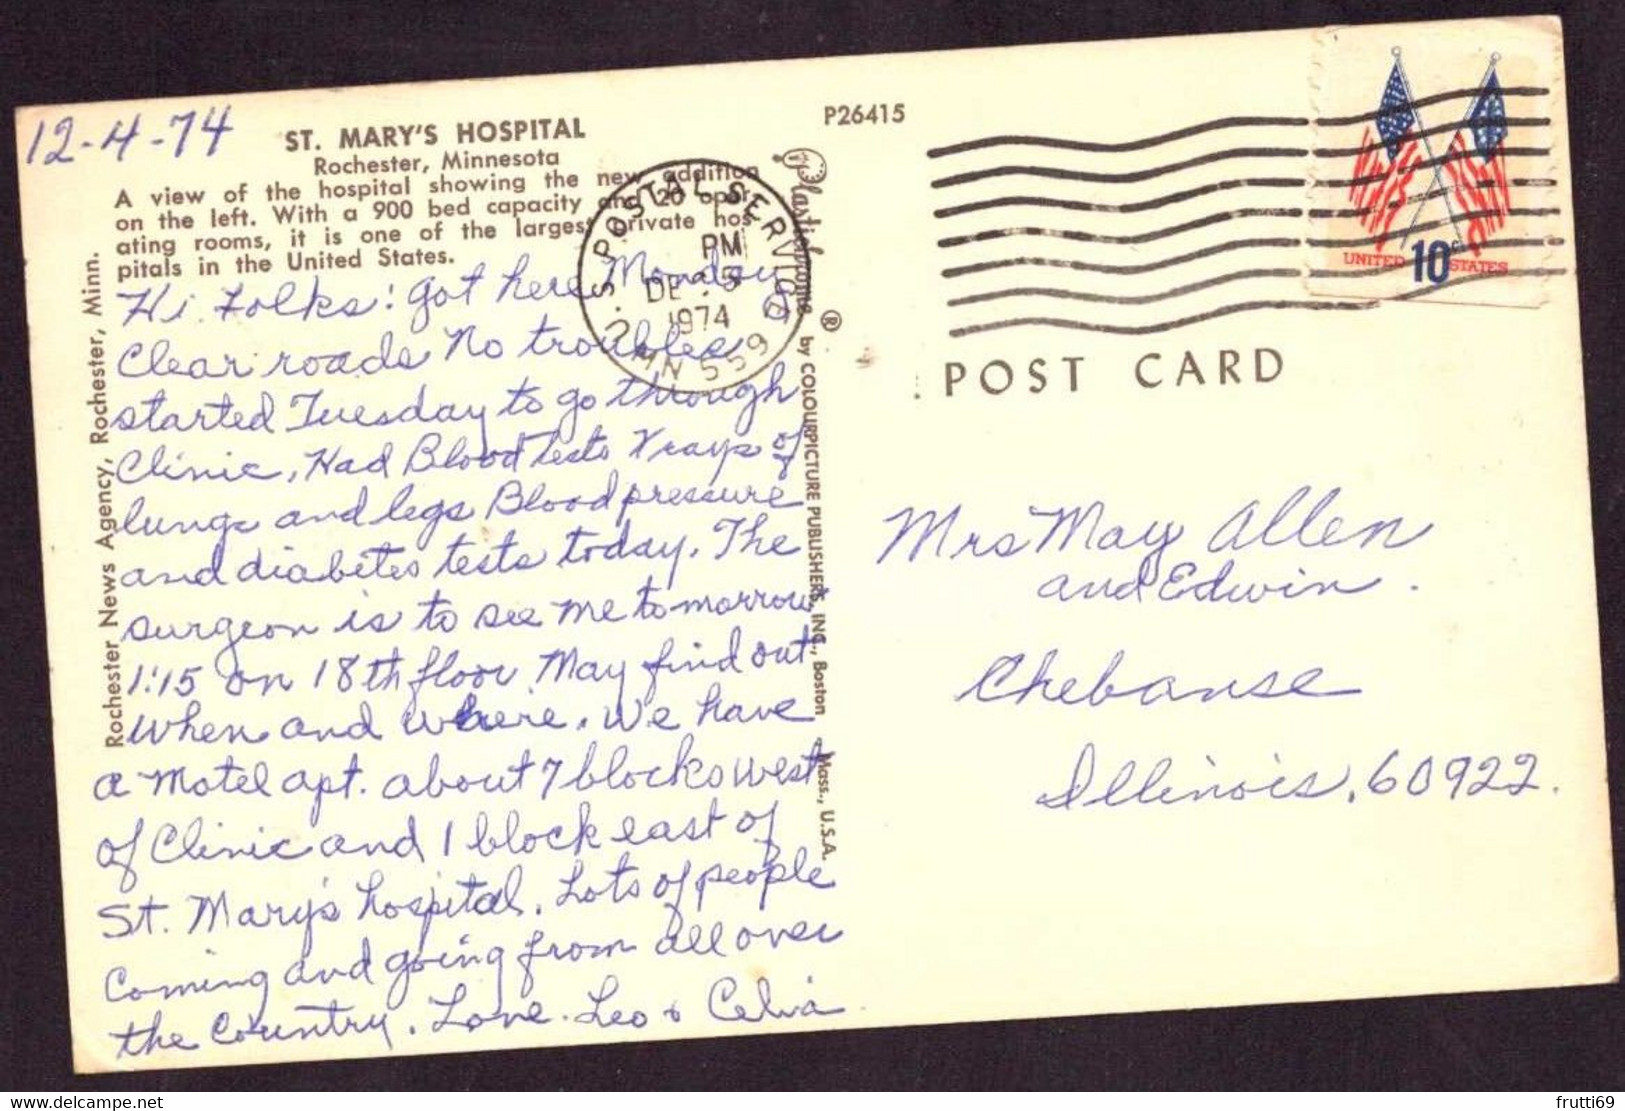 12-4-74
ST. MARY'S HOSPITAL
Rochester, Minnesota
A view of the hospital showing the new addition
on the left. With a 900 bed capacity and 20 oper-
ating rooms, it is one of the largest private hos-
pitals in the United States.
Hi Folks! got here Monday
Clear roads No troubles
started Tuesday to go through
Clinic, Had Blood Tests Xrays of
lungs and legs Blood pressure
and diabetes tests today. The
surgeon is to see me tomorrow
1:15 on 18th floor May find out
when and where. We have
a Motel apt. about 7 blocks west
of Clinic and 1 block east of
St. Mary's hospital. Lots of people
Coming and going from all over
the Country. Love. Leo & Celvia
Rochester News Agency, Rochester, Minn.
U.S. POSTAL SERVICE
MN 559
PM
DE -5
1974
P26415
Plastichrome ® by COLOURPICTURE PUBLISHERS, INC., Boston Mass., U.S.A.
UNITED 10c STATES
POST CARD
Mrs May Allen
and Edwin.
Chebanse
Illinois, 60922.
www.delcampe.net
frutti69